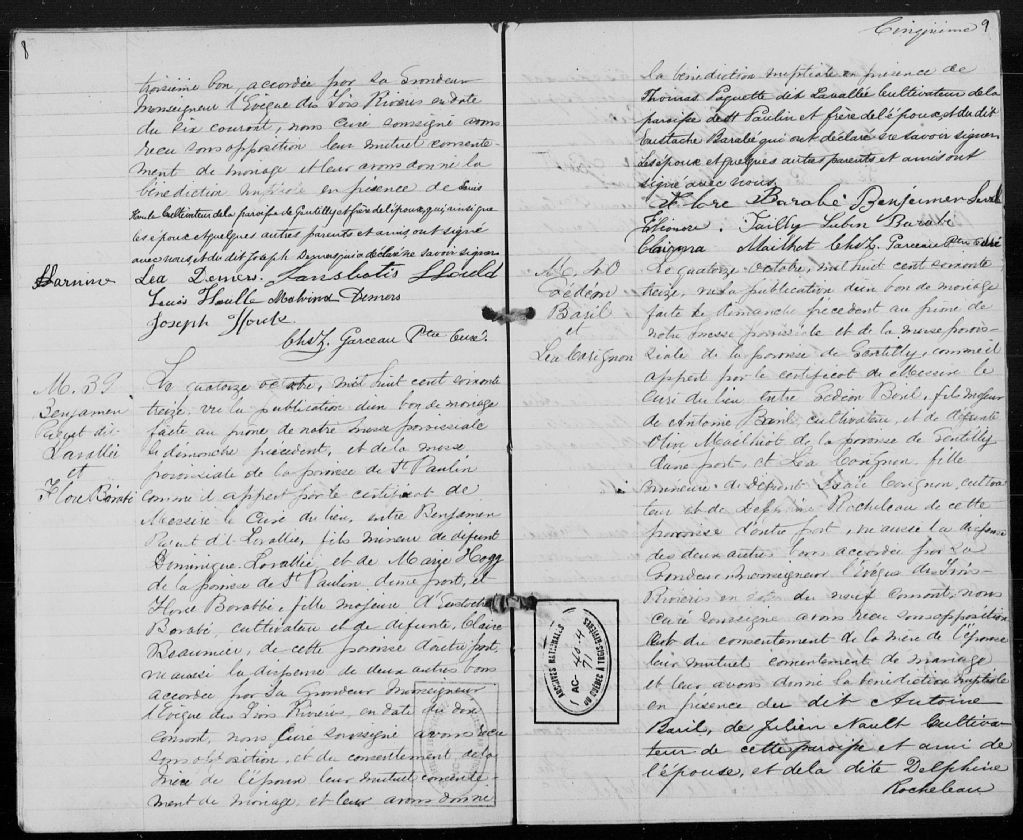 8
troisième ban, accordée par Sa Grandeur
Monseigneur l'Evêque des Trois Rivières en date
du dix courant, nous Curé soussigné avons
recu sans opposition leur mutuel consente-
ment de mariage et leur avons donné la
bénédiction nuptiale en présence de Louis
Houle Cultivateur de la paroisse de Gentilly et frère de l'époux, qui ainsi que
les époux et quelques autres parents et amis ont signé
avec nous et du dit Joseph Demers qui a déclaré ne savoir signer
Lea Demers. Houle
Louis Houlle Malvina Demers
Joseph Houle
Chs Z. Garceau Ptre Curé.
M. 39
Benjamen
Paquet dit
Lavallée
et
Flore Barabé
Le quatorze octobre, mil huit cent soixante
treize, vu la publication d'un ban de mariage
faite au prone de notre messe paroissiale
le dimanche précédent, et de la messe
paroissiale de la paroisse de St Paulin
comme il appert par le certificat de
Messire le Curé du lieu, entre Benjamen
Paquet dit Lavallée, fils mineur de défunt
Dominique Lavallée et de Marie Hogg
de la paroisse de St Paulin d'une part, et
Flore Barabbé, fille majeure d'Eustache
Barabé, cultivateur et de défunte Claire
Beaumier, de cette paroisse d'autre part,
vu aussi la dispense de deux autres bans
accordée par Sa Grandeur Monseigneur
l'Evêque des Trois Rivières, en date du dix
courant, nous Curé soussigné avons recu
sans opposition, et du consentement de la
mère de l'époux leur mutuel consente-
ment de mariage et leur avons donné
Cinquième 9
la bénédiction nuptiale en présence de
Thomas Paquette dit Lavallée Cultivateur de la
paroisse de St Paulin et frère de l'époux, et du dit
Eustache Barabé qui ont déclaré ne savoir signer
les époux et quelques autres parents et amis ont
signé avec nous
Flore Barabé Benjeimen Laval
Eléonore Tailly Lubin Barabé
Mailhot Chs Z. Garceau Ptre Curé
M. 40
Gédéon
Baril
et
Lea Carignon
Le quatorze octobre, mil huit cent soixante
treize, vu la publication d'un ban de mariage
faite le dimanche précédent au prone de
notre messe paroissiale et de la messe parois-
siale de la paroisse de Gentilly, comme il
appert par le certificat de Messire le
Curé du lieu entre Gédéon Baril, fils majeur
de Antoine Baril cultivateur, et de défunte
Olive Mailhiot de la paroisse de Gentilly
d'une part, et Léa Carignon, fille
mineure de défunt Carignon, cultiva
teur et de Delphine Rocheleau de cette
paroisse d'autre part, vu aussi la dispense
des deux autres bans accordée par Sa
Grandeur Monseigneur l'Evêque des Trois-
Rivières en date du neuf courant, nous
curé soussigné avons recu sans opposition
et du consentement de la mère de l'épouse
leur mutuel consentement de mariage
et leur avons donné la bénédiction nuptiale
en présence du dit Antoine
Baril, de Julien Nault Cultiva-
teur de cette paroisse et ami de
l'épouse, et de la dite Delphine
Rocheleau
ARCHIVES NATIONALES
AC - 40-4
71
DU QUÉBEC À TROIS-RIVIÈRES